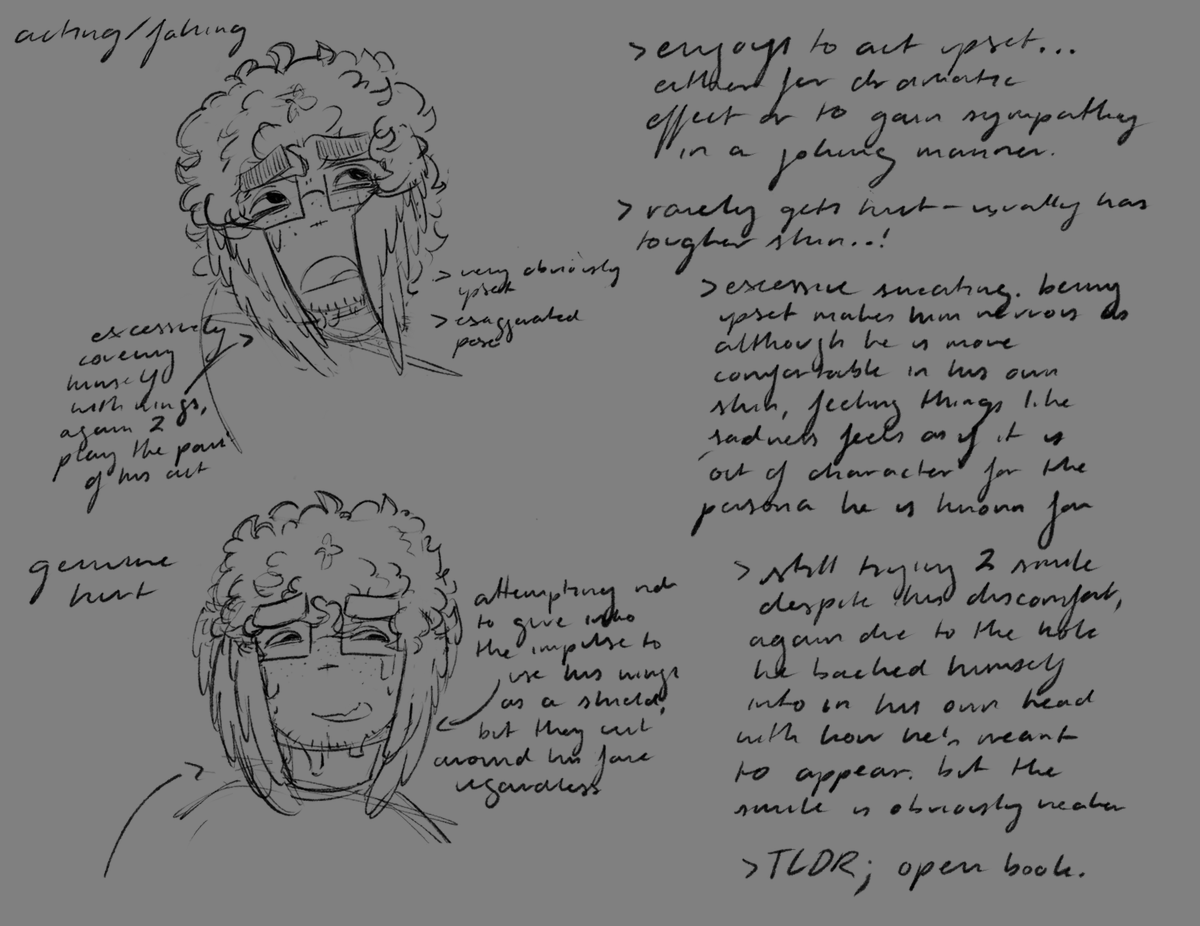 acting/faking
> enjoys to act upset...
either for dramatic
effect or to gain sympathy
in a joking manner.
> rarely gets hurt - usually has
tougher skin..!
> very obviously
upset
> exaggerated
pose
excessively
covering
himself
with wings,
again 2
play the part
of his act
> excessive sweating. being
upset makes him nervous as
although he is more
comfortable in his own
skin, feeling things like
sadness feels as if it is
out of character for the
persona he is known for
genuine
hurt
attempting not
to give into
the impulse to
use his wings
as a shield,
but they curl
around his face
regardless
> still trying 2 smile
despite his discomfort,
again due to the hole
he backed himself
into in his own head
with how he's meant
to appear. but the
smile is obviously weaker
> TLDR; open book.